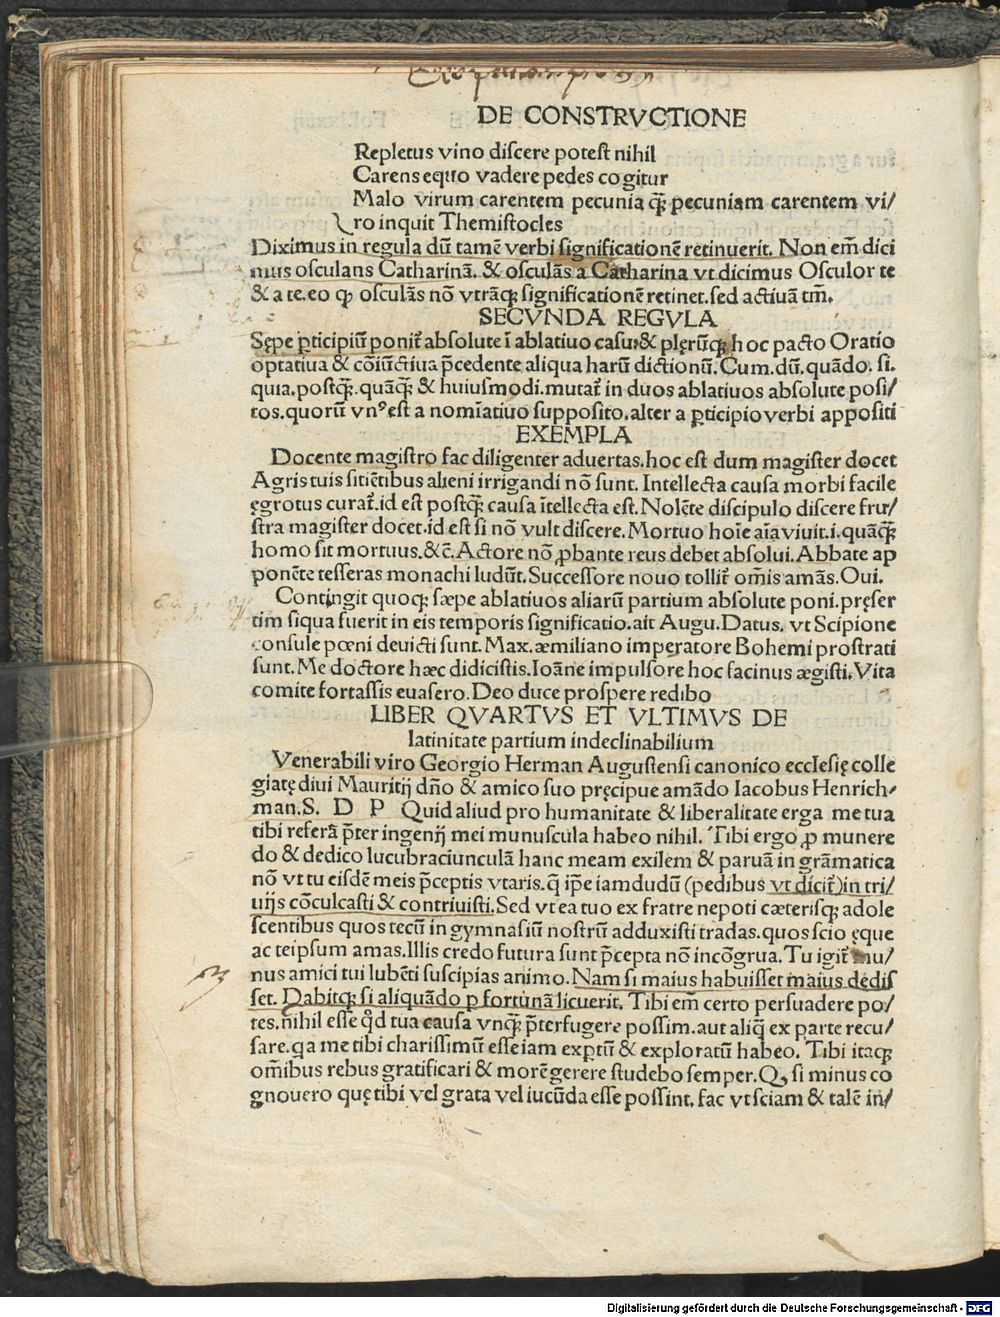 DE CONSTRVCTIONE
Repletus vino diſcere poteſt nihil
Carens equo vadere pedes cogitur
Malo virum carentem pecunia q̄ꝫ pecuniam carentem vi/
ro inquit Themiſtocles
Diximus in regula dū tamē verbi ſignificationē retinuerit. Non em̄ dici
mus oſculans Catharinā. & oſculās a Catharina vt dicimus Oſculor te
& a te. eo ꝙ oſculās nō vtrāqꝫ ſignificationē retinet. ſed actiuā tm̄.
SECVNDA REGVLA
Sępe ꝑticipiū ponit᷑ abſolute ī ablatiuo caſu: & plęrūqꝫ hoc pacto Oratio
optatiua & cōiūctiua p̄cedente aliqua harū dictionū. Cum. dū. quādo. ſi.
quia. poſtq̄ꝫ. quāq̄ꝫ & huiuſmodi. mutat᷑ in duos ablatiuos abſolute poſi/
tos. quorū vnꝰ eſt a nomīatiuo ſuppoſito. alter a ꝑticipio verbi appoſiti
EXEMPLA
Docente magiſtro fac diligenter aduertas. hoc eſt dum magiſter docet
Agris tuis ſitiētibus alieni irrigandi nō ſunt. Intellecta cauſa morbi facile
ęgrotus curat᷑. id eſt poſtq̄ꝫ cauſa ītellecta eſt. Nolēte diſcipulo diſcere fru/
ſtra magiſter docet. id eſt ſi nō vult diſcere. Mortuo hoīe aīa viuit. i. quāq̄ꝫ
homo ſit mortuus. &c̄. Actore nō ꝓbante reus debet abſolui. Abbate ap
ponēte teſſeras monachi ludūt. Succeſſore nouo tollit᷑ om̄is amās. Oui.
Contingit quoqꝫ ſæpe ablatiuos aliarū partium abſolute poni. pręſer
tim ſiqua fuerit in eis temporis ſignificatio. ait Augu. Datus. vt Scipione
conſule pœni deuicti ſunt. Max. æmiliano imperatore Bohemi proſtrati
ſunt. Me doctore hæc didiciſtis. Ioāne impulſore hoc facinus ægiſti. Vita
comite fortaſſis euaſero. Deo duce proſpere redibo
LIBER QVARTVS ET VLTIMVS DE
latinitate partium indeclinabilium
Venerabili viro Georgio Herman Auguſtenſi canonico eccleſię colle
giatę diui Mauritij dn̄o & amico ſuo pręcipue amādo Iacobus Henrich/
man. S. D P Quid aliud pro humanitate & liberalitate erga me tua
tibi referā p̄ter ingenij mei munuſcula habeo nihil. Tibi ergo ꝓ munere
do & dedico lucubraciunculā hanc meam exilem & paruā in grāmatica
nō vt tu eiſdē meis p̄ceptis vtaris. q̄ ip̄e iamdudū (pedibus vt dicit᷑) in tri/
uijs cōculcaſti & contriuiſti. Sed vt ea tuo ex fratre nepoti cæteriſqꝫ adole
ſcentibus quos tecū in gymnaſiū noſtrū adduxiſti tradas. quos ſcio ęque
ac teipſum amas. Illis credo futura ſunt p̄cepta nō incōgrua. Tu igit᷑ mu/
nus amici tui lubēti ſuſcipias animo. Nam ſi maius habuiſſet maius dediſ
ſet. Dabitqꝫ ſi aliquādo ꝑ fortunā licuerit. Tibi em̄ certo perſuadere po/
tes. nihil eſſe qd̓ tua cauſa vnq̄ꝫ p̄terfugere poſſim. aut aliq̄ ex parte recu/
ſare. qa me tibi chariſſimū eſſe iam exptū & exploratū habeo. Tibi itaqꝫ
om̄ibus rebus gratificari & morē gerere ſtudebo ſemper. Q, ſi minus co
gnouero quę tibi vel grata vel iucūda eſſe poſſint. fac vt ſciam & talē in/
Digitalisierung gefördert durch die Deutsche Forschungsgemeinschaft - DFG